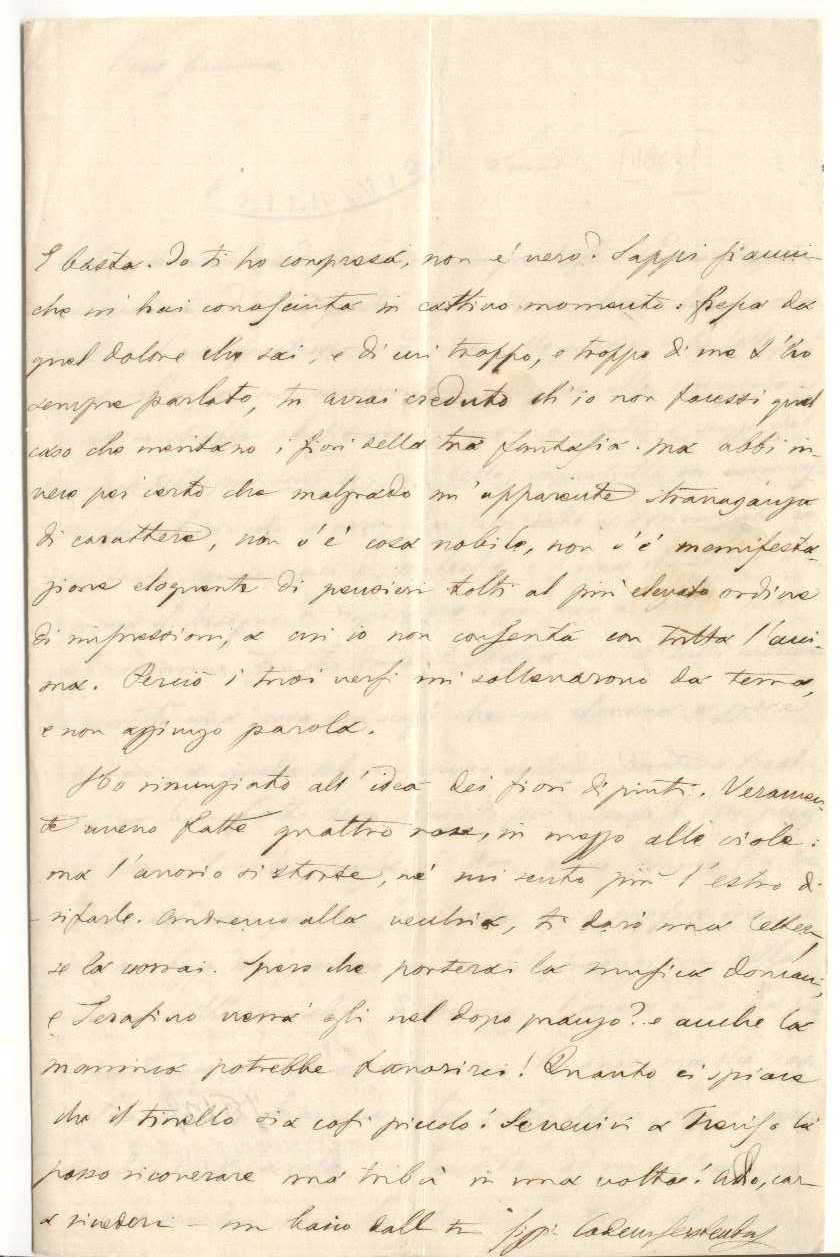 E basta. Io ti ho compresa, non è vero? Sappi
che m'hai conosciuta in cattivo momento. Presa da
quel dolore che sai, e di cui troppo, e troppo di me t'ho
sempre parlato, tu avrai creduto ch'io non facessi quel
caso che meritano i fiori della tua fantasia. Ma abbi in-
vece per certo che malgrado un'apparente stravaganza
di carattere, non c'è cosa nobile, non c'è manifesta-
zione eloquente di pensieri tolti al più elevato ordine
di impressioni, a cui io non consenta con tutta l'ani-
ma. Perciò i tuoi versi mi sollevarono da terra,
e non aggiungo parola.
Ho rinunziato all'idea dei fiori dipinti. Veramen-
te avevo fatte quattro rose, in mezzo alle viole:
ma l'avorio si storse, nè mi sento più l'estro di
rifarle. Andremo alla ventura, ti darò una
se la vorrai. Spero che porterai la musica domani,
e Serafino verrà egli nel dopo pranzo? e anche la
mammina potrebbe favorirci! Quanto ci spiace
che il tinello sia così piccolo! Se venivi a Treviso là
posso ricoverare una tribù in una volta! Addio, car-
a rivederci – un bacio dalla tua